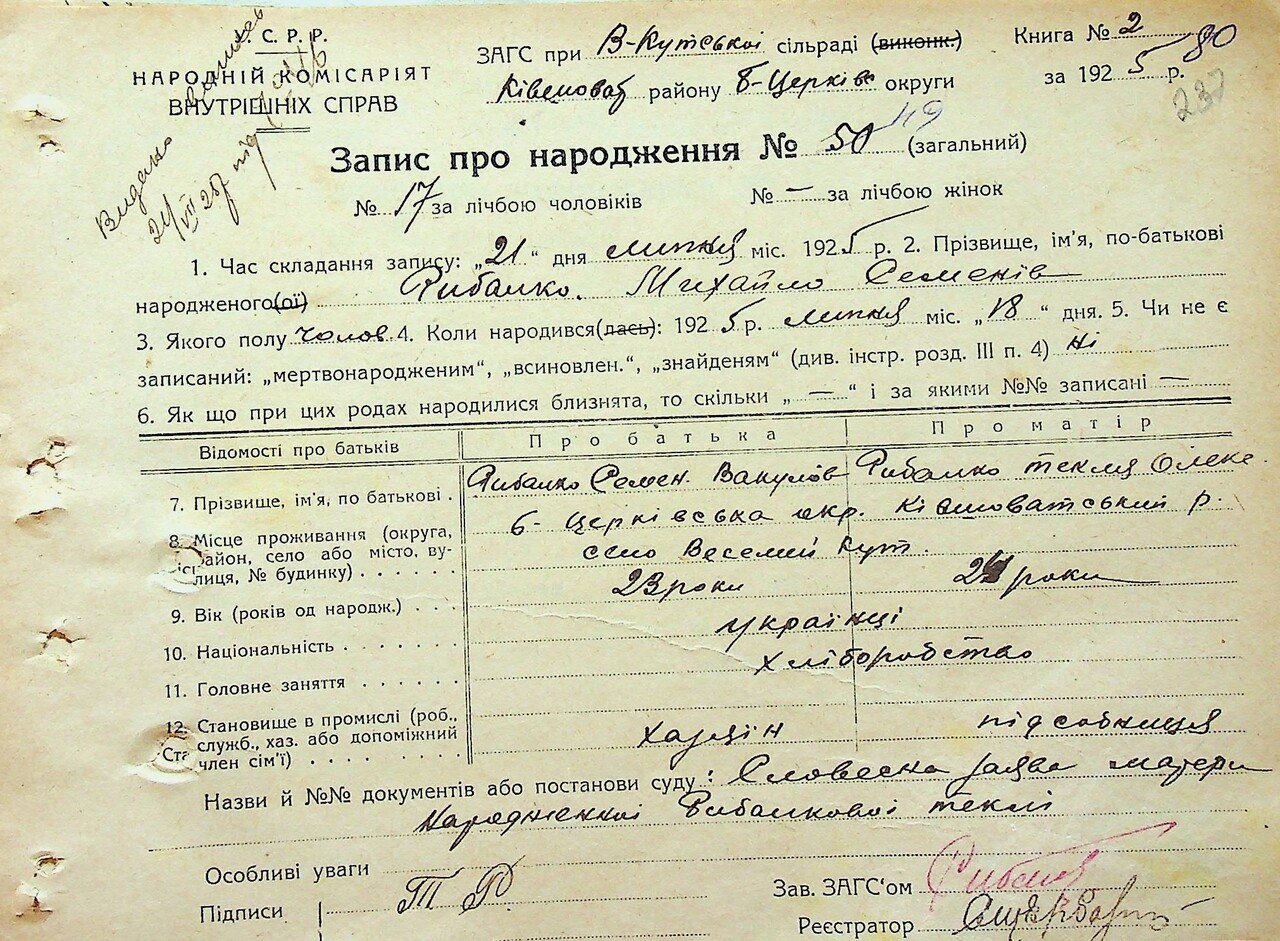 У. С. Р. Р.
НАРОДНІЙ КОМІСАРІЯТ
ВНУТРІШНІХ СПРАВ
Видано
ЗАГС при В-Кутської сільраді (виконк.)
району Б-Церків округи
Книга № 2
за 1925 р.
80
237
Запис про народження № 50 49 (загальний)
№ 17 за лічбою чоловіків № — за лічбою жінок
1. Час складання запису: „21“ дня липня міс. 1925 р. 2. Прізвище, ім'я, по-батькові
народженого(ої) Рибалко Михайло Семенів
3. Якого полу чолов. 4. Коли народився(лась): 1925 р. липня міс. „18“ дня. 5. Чи не є
записаний: „мертвонародженим“, „всиновлен.“, „знайденям“ (див. інстр. розд. III п. 4) ні
6. Як що при цих родах народилися близнята, то скільки „ — “ і за якими №№ записані —
Відомості про батьків Про батька Про матір
7. Прізвище, ім'я, по батькові . Рибалко Семен Вакулов Рибалко текля Олекс.
8. Місце проживання (округа, район, село або місто, вулиця, № будинку) . . . . . . Б-Церківська окр. Кішоватський р.
село Веселий Кут.
9. Вік (років од народж.) . . . 23 роки 24 роки
10. Національність . . . . . . українці
11. Головне заняття . . . . . . хліборобство
12. Становище в промислі (роб., служб., хаз. або допоміжний член сім'ї) . . . . . . хазяїн підсобниця
Назви й №№ документів або постанови суду: Словесна заява матери
народженної Рибалкової теклі
Особливі уваги
Підписи Т Р
Зав. ЗАГС'ом
Реєстратор